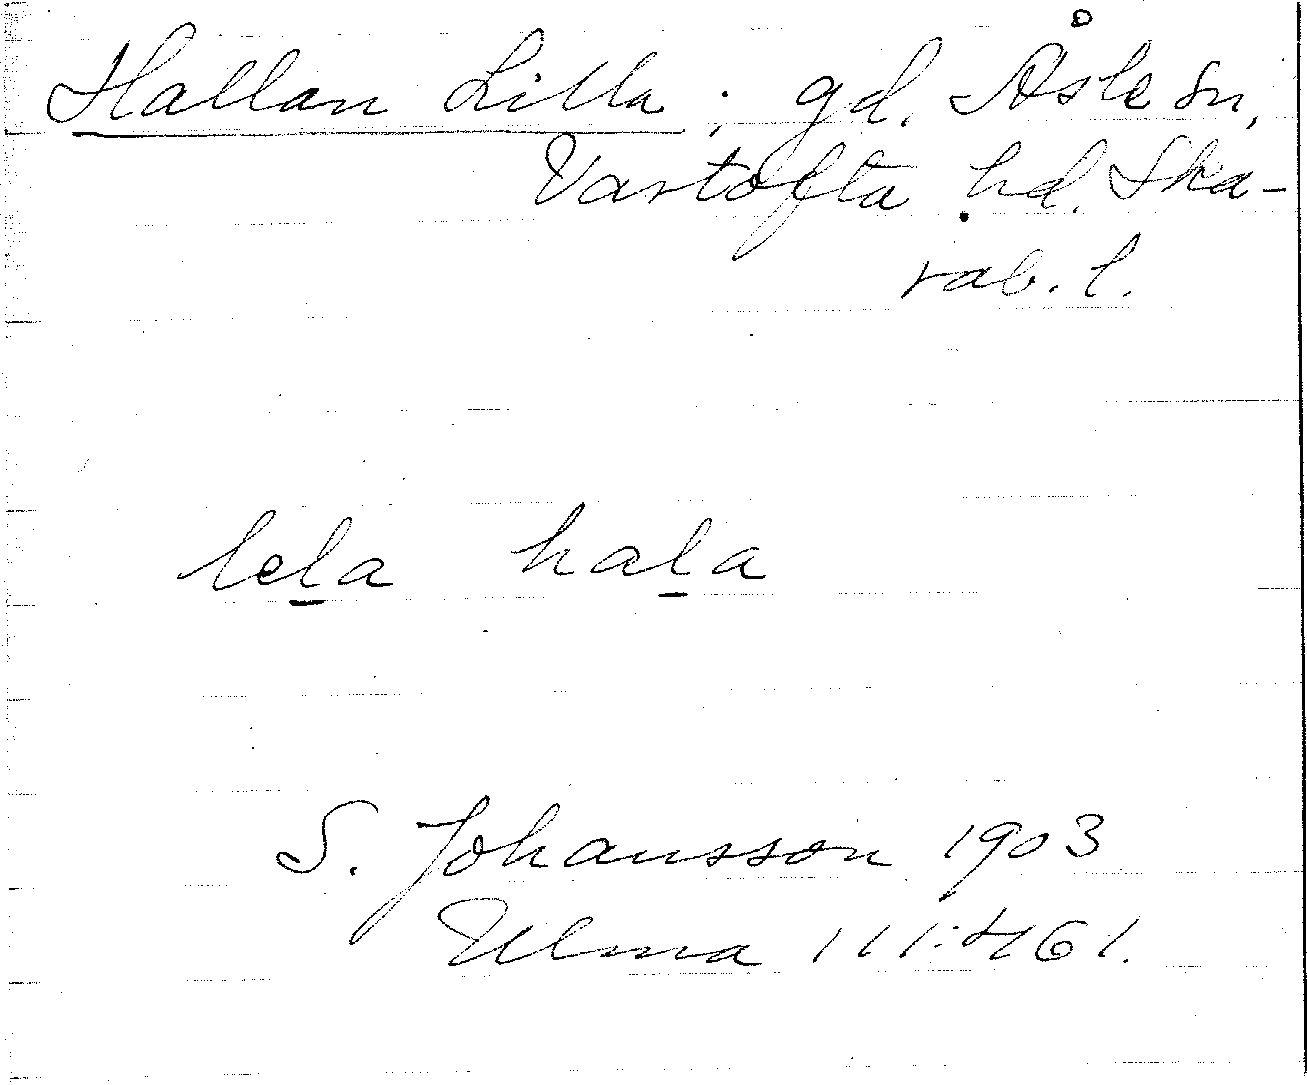 Hallan Lilla, gd. Åsle sn,
Vartofta hd. Ska-
rab. l.
lela hala
S. Johansson 1903
Ulma 111:461.